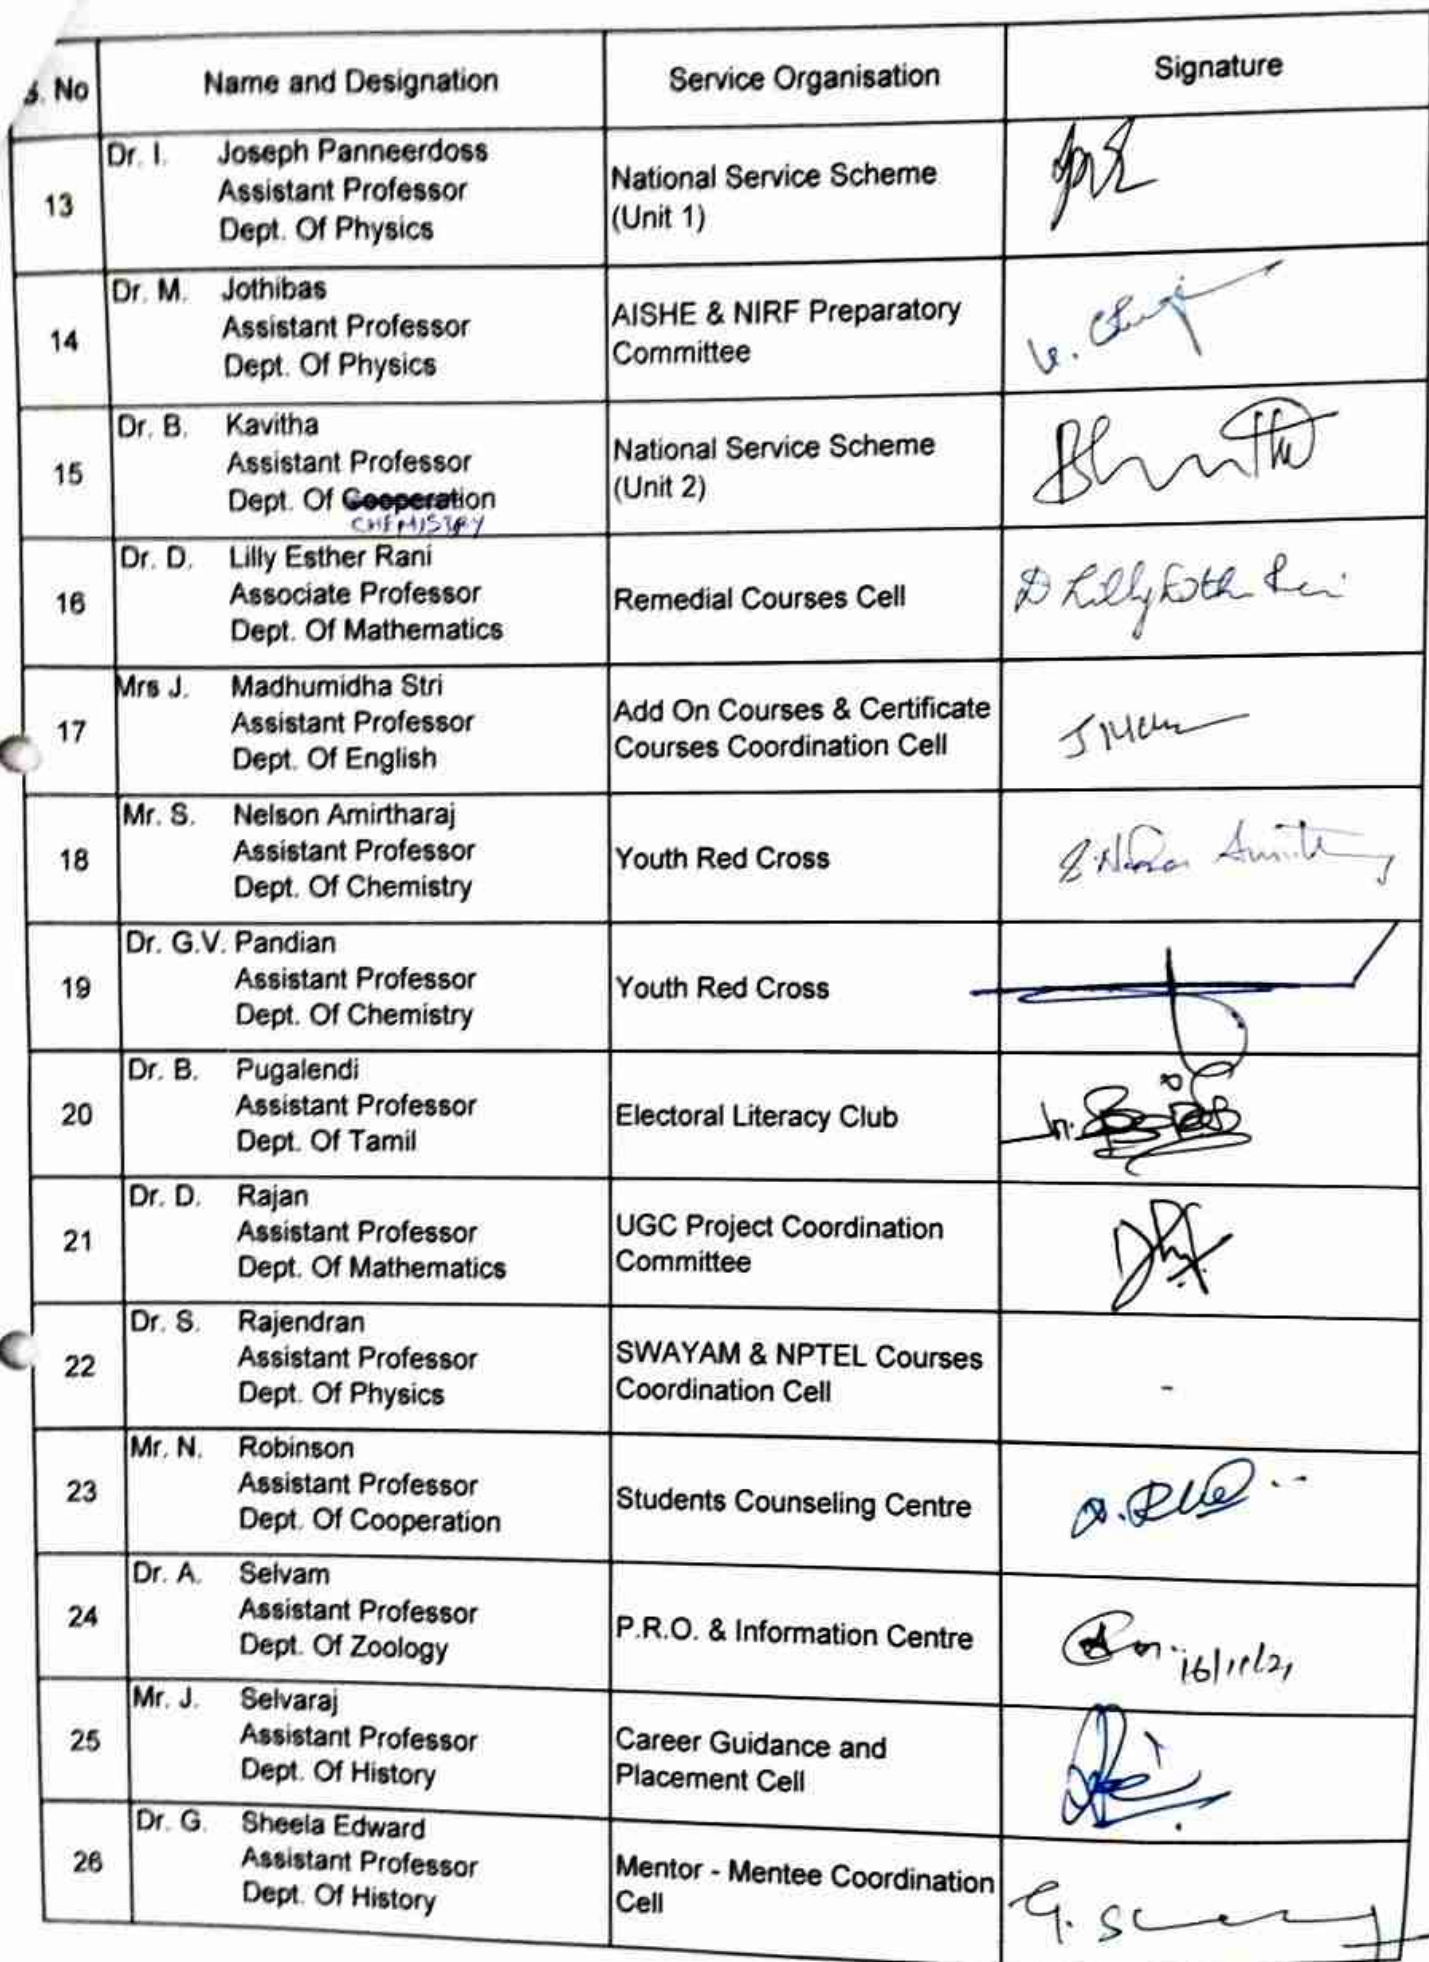 S. No Name and Designation Service Organisation Signature
13 Dr. I. Joseph Panneerdoss
Assistant Professor
Dept. Of Physics
National Service Scheme
(Unit 1)
14 Dr. M. Jothibas
Assistant Professor
Dept. Of Physics
AISHE & NIRF Preparatory
Committee
15 Dr. B. Kavitha
Assistant Professor
Dept. Of Cooperation
CHEMISTRY
National Service Scheme
(Unit 2)
16 Dr. D. Lilly Esther Rani
Associate Professor
Dept. Of Mathematics
Remedial Courses Cell
D Lilly Esther Rani
17 Mrs J. Madhumidha Stri
Assistant Professor
Dept. Of English
Add On Courses & Certificate
Courses Coordination Cell
18 Mr. S. Nelson Amirtharaj
Assistant Professor
Dept. Of Chemistry
Youth Red Cross
19 Dr. G.V. Pandian
Assistant Professor
Dept. Of Chemistry
Youth Red Cross
20 Dr. B. Pugalendi
Assistant Professor
Dept. Of Tamil
Electoral Literacy Club
21 Dr. D. Rajan
Assistant Professor
Dept. Of Mathematics
UGC Project Coordination
Committee
22 Dr. S. Rajendran
Assistant Professor
Dept. Of Physics
SWAYAM & NPTEL Courses
Coordination Cell
-
23 Mr. N. Robinson
Assistant Professor
Dept. Of Cooperation
Students Counseling Centre
24 Dr. A. Selvam
Assistant Professor
Dept. Of Zoology
P.R.O. & Information Centre
16/11/21
25 Mr. J. Selvaraj
Assistant Professor
Dept. Of History
Career Guidance and
Placement Cell
26 Dr. G. Sheela Edward
Assistant Professor
Dept. Of History
Mentor - Mentee Coordination
Cell